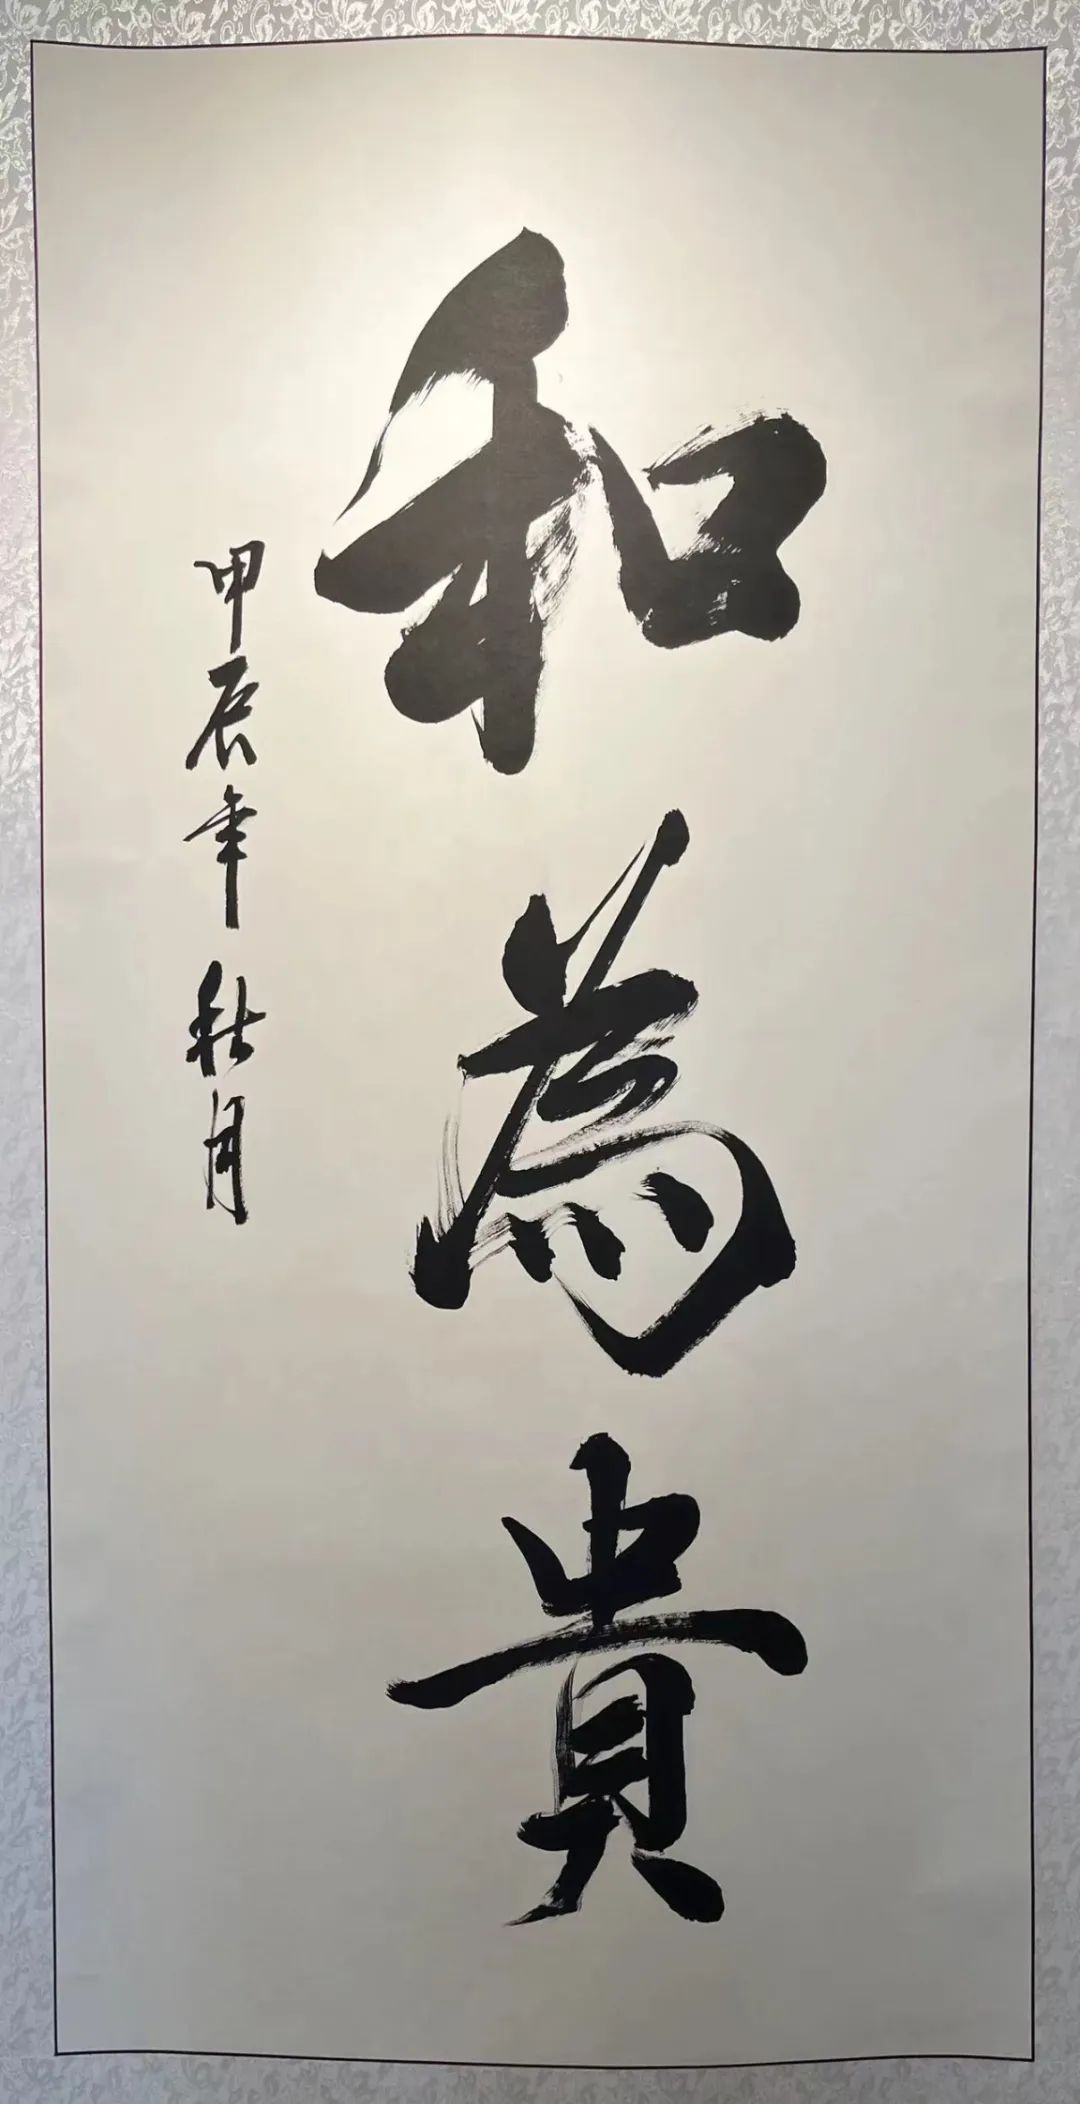 和為貴
甲辰年 秋月